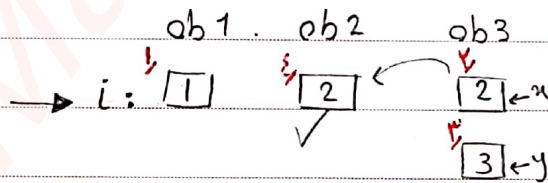 ob1. ob2 ob3
١, ٤, ٢,
→ i: 1 2 2 ← x
✓
٣,
3 ← y